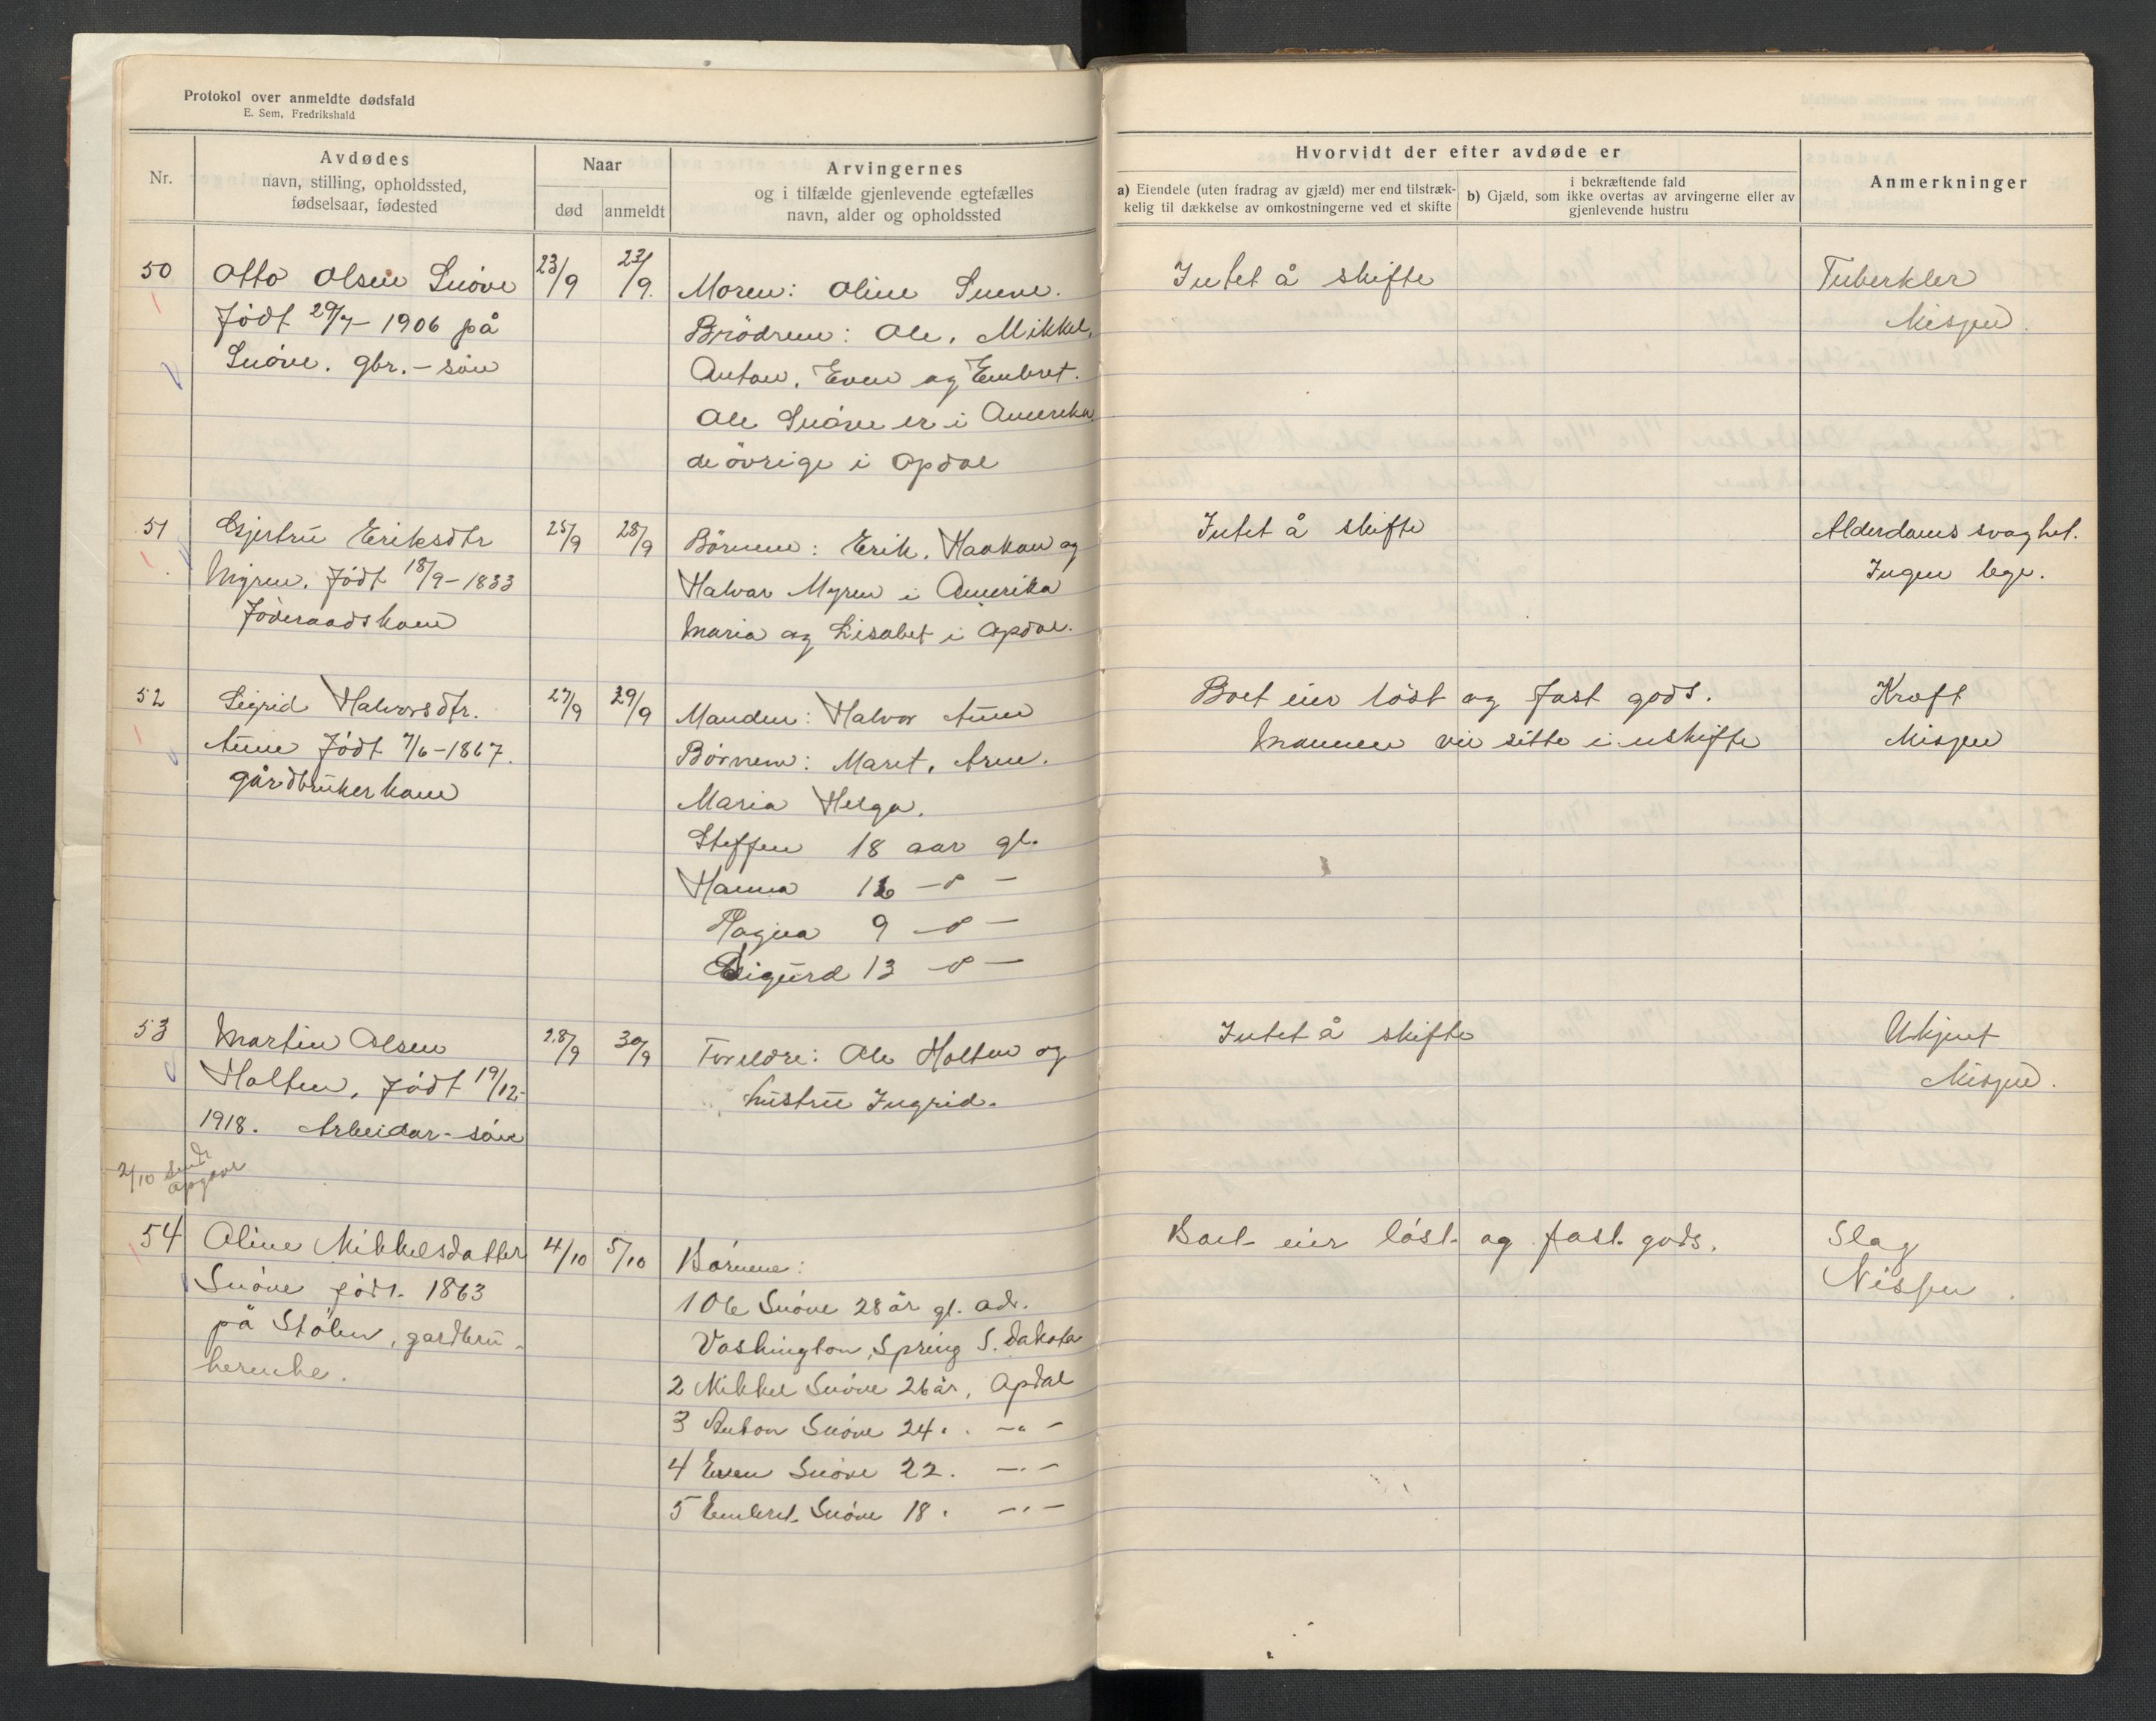 Protokol over anmeldte dødsfald
E. Sem, Fredrikshald
Nr.
Avdødes
navn, stilling, opholdssted,
fødselsaar, fødested
Naar
død
anmeldt
Arvingernes
og i tilfælde gjenlevende egtefælles
navn, alder og opholdssted
Hvorvidt der efter avdøde er
a) Eiendele (uten fradrag av gjæld) mer end tilstræk-
kelig til dækkelse av omkostningerne ved et skifte
i bekræftende fald
b) Gjæld, som ikke overtas av arvingerne eller av
gjenlevende hustru
Anmerkninger
50
Otto Olsen Snöve
Födt 29/7-1906 på
Snöve. gbr.-sön
23/9
23/9.
Moren: Oline Snöve.
Brödrene: Ole, Mikkel,
Anton, Even og Embret.
Ole Snöve er i Amerika
de övrige i Opdal
Intet å skifte
Tuberkler
Nispen.
51
Gjertru Eriksdtr
Myren. Födt 18/9-1833
Föderaadskone
25/9
28/9
Börnene: Erik, Haakon og
Halvar Myren i Amerika
Maria og Lisabet i Opdal.
Intet å skifte
Alderdoms svaghet.
Ingen lege.
52
Sigrid Halvorsdtr.
Aune Födt 7/6-1867.
gårdbrukerkone
27/9
29/9
Manden: Halvor Aune
Börnene: Marit, Arne.
Maria Helga.
Steffen 18 aar gl.
Hanna 16 -"-
Magna 9 -"-
Sigurd 13 -"-
Boet eier löst og fast gods.
Mannen vil sitte i uskifte
Kreft
Nispen
53
Martin Olsen
Holten, Födt 19/12-
1918. Arbeidar-sön
28/9
30/9
Foreldre: Ole Holten og
hustru Ingrid.
Intet å skifte
Ukjent
Nispen.
2/10 sendt
opgave
54
Oline Mikkelsdatter
Snöve födt. 1863
på Stölen, gardbru-
kerenke.
4/10
5/10
Börnene:
1 Ole Snöve 28 år gl. adr.
Vashington, Spring S. Dakota
2 Mikkel Snöve 26 år, Opdal
3 Anton Snöve 24 . . -"-
4 Even Snöve 22 . -"-
5 Embret Snöve 18 . -"-
Boet eier löst og fast gods.
Slag
Nissen.